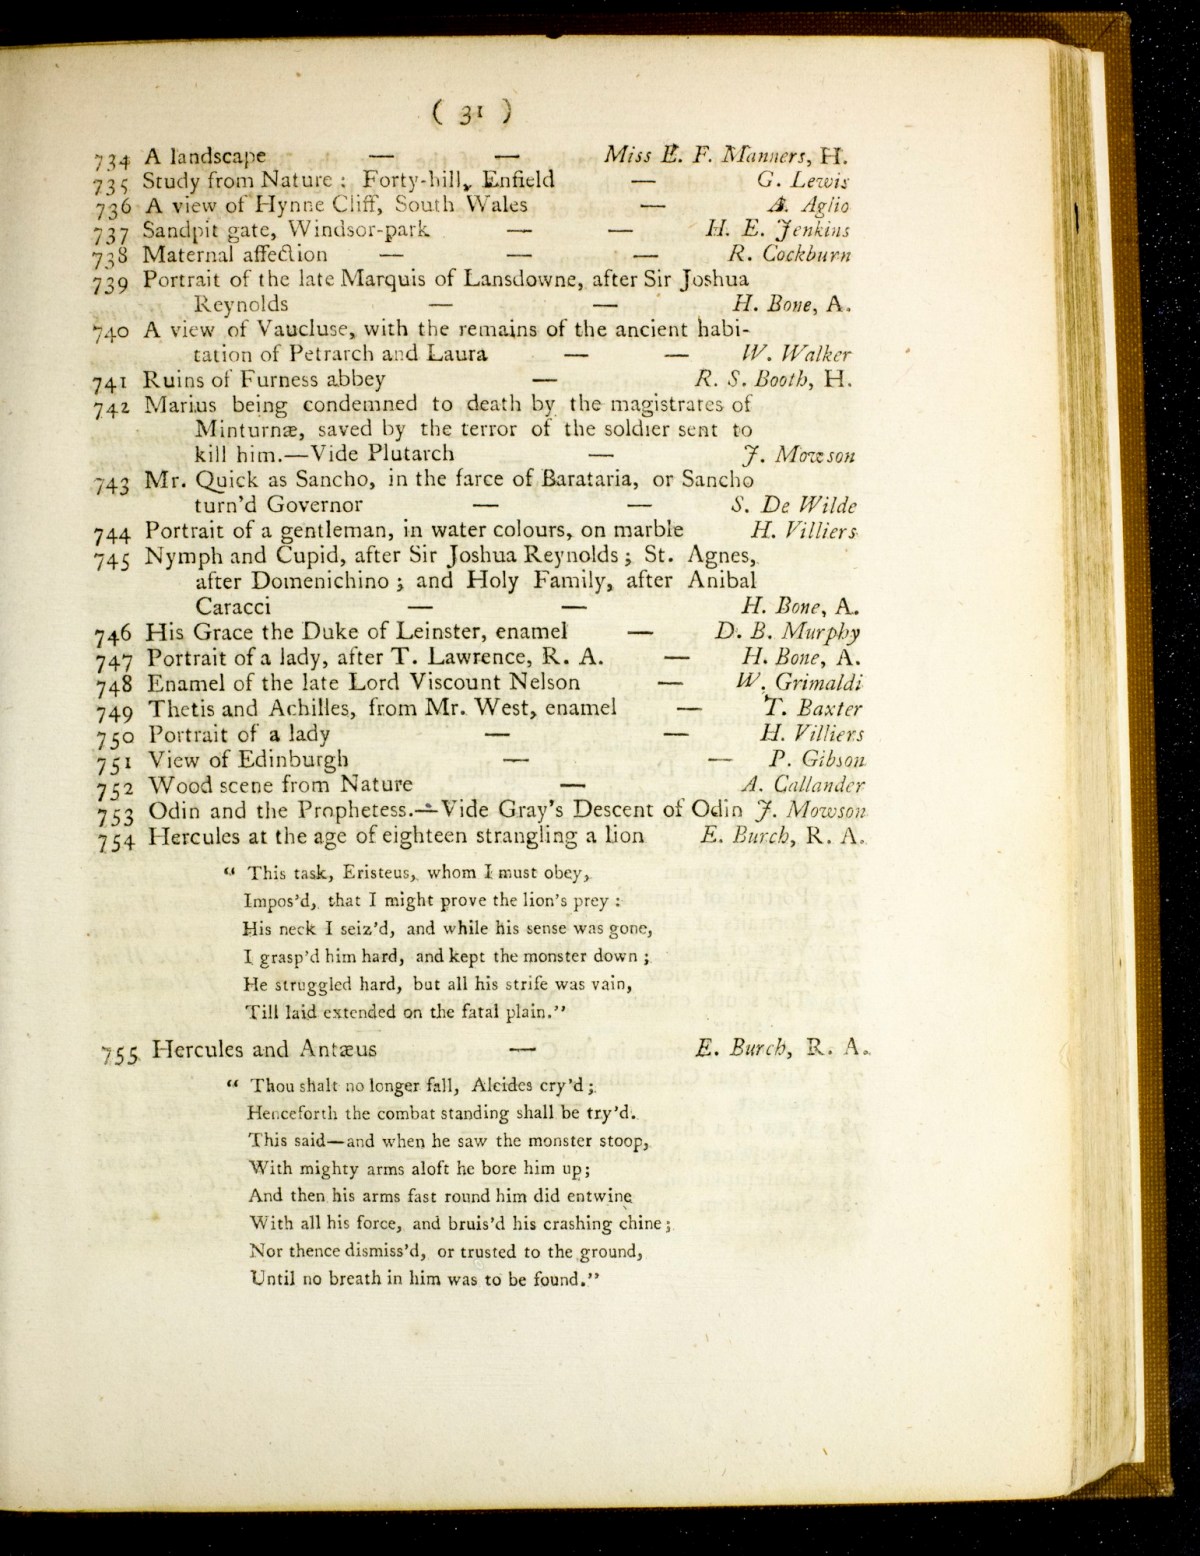 ( 31 )
734 A landscape — — Miss E. F. Manners, H.
735 Study from Nature : Forty-hill, Enfield — G. Lewis
736 A view of Hynne Cliff, South Wales — A. Aglio
737 Sandpit gate, Windsor-park — — H. E. Jenkins
738 Maternal affection — — — R. Cockburn
739 Portrait of the late Marquis of Lansdowne, after Sir Joshua
Reynolds — — H. Bone, A.
740 A view of Vaucluse, with the remains of the ancient habi-
tation of Petrarch and Laura — — W. Walker
741 Ruins of Furness abbey — R. S. Booth, H.
742 Marius being condemned to death by the magistrates of
Minturnæ, saved by the terror of the soldier sent to
kill him.—Vide Plutarch — J. Mowson
743 Mr. Quick as Sancho, in the farce of Barataria, or Sancho
turn'd Governor — — S. De Wilde
744 Portrait of a gentleman, in water colours, on marble H. Villiers
745 Nymph and Cupid, after Sir Joshua Reynolds ; St. Agnes,
after Domenichino ; and Holy Family, after Anibal
Caracci — — H. Bone, A.
746 His Grace the Duke of Leinster, enamel — D. B. Murphy
747 Portrait of a lady, after T. Lawrence, R. A. — H. Bone, A.
748 Enamel of the late Lord Viscount Nelson — W. Grimaldi
749 Thetis and Achilles, from Mr. West, enamel — T. Baxter
750 Portrait of a lady — — H. Villiers
751 View of Edinburgh — — P. Gibson
752 Wood scene from Nature — A. Callander
753 Odin and the Prophetess.—Vide Gray's Descent of Odin J. Mowson
754 Hercules at the age of eighteen strangling a lion E. Burch, R. A.
“ This task, Eristeus, whom I must obey,
Impos'd, that I might prove the lion's prey :
His neck I seiz'd, and while his sense was gone,
I grasp'd him hard, and kept the monster down ;
He struggled hard, but all his strife was vain,
Till laid extended on the fatal plain.”
755 Hercules and Antæus — E. Burch, R. A.
“ Thou shalt no longer fall, Alcides cry'd ;
Henceforth the combat standing shall be try'd.
This said—and when he saw the monster stoop,
With mighty arms aloft he bore him up;
And then his arms fast round him did entwine
With all his force, and bruis'd his crashing chine;
Nor thence dismiss'd, or trusted to the ground,
Until no breath in him was to be found.”